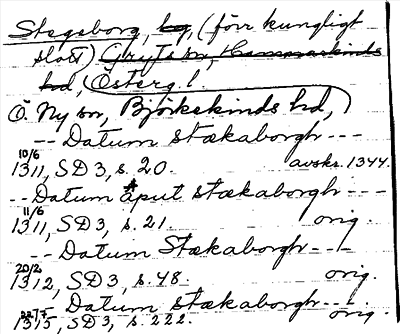 Stegeborg, kg, (förr kungligt
slott) Gryts sn, Hammarkinds
hd, Österg l.
Ö. Ny sn, Björkekinds hd,)
-- Datum stækaborgh ---
10/6 1311, SD 3, s. 20. avskr. 1344.
-- Datum aput stækaborgh ---
11/6 1311, SD 3, s. 21. orig.
-- Datum Stækaborgh ---
20/2 1312, SD 3, s. 48. orig.
-- Datum stækaborgh ---
22/7 1315, SD 3, s. 222. orig.